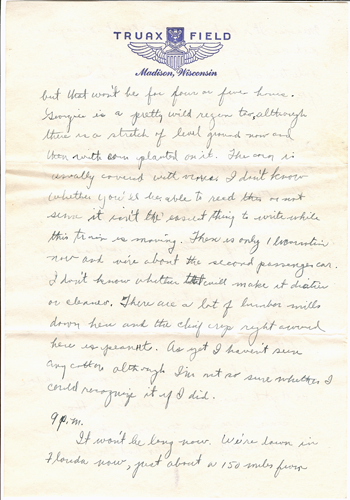 TRUAX FIELD
Madison, Wisconsin
but that won't be for four or five hours.
Georgia is a pretty wild region too, although
there is a stretch of level ground now and
then with corn planted on it. The corn is
usually covered with I don't know
whether you'll be able to read this or not
since it isn't the easiest thing to write while
this train is moving. There is only 1 locomotive
now and we're about the second passenger car.
I don't know whether that will make it dirtier
or cleaner. There are a lot of lumber mills
down here and the chief crop right around
here is peanuts. As yet I haven't seen
any cotton although I'm not so sure whether I
could recognize it if I did.
9 p.m.
It won't be long now. We're down in
Florida now, just about a 150 miles from